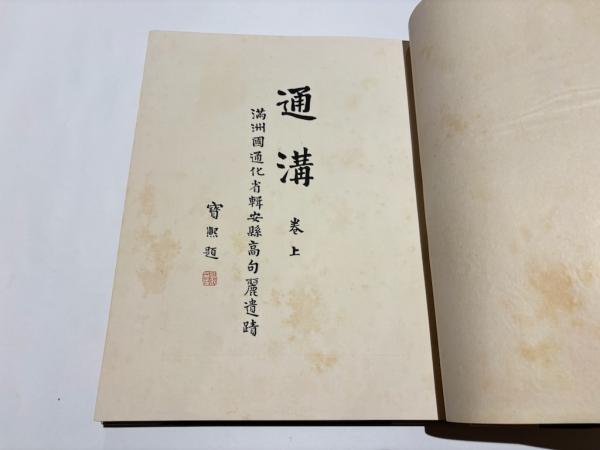 通溝 卷上
滿洲國通化省輯安縣高句麗遺蹟
寶熙題